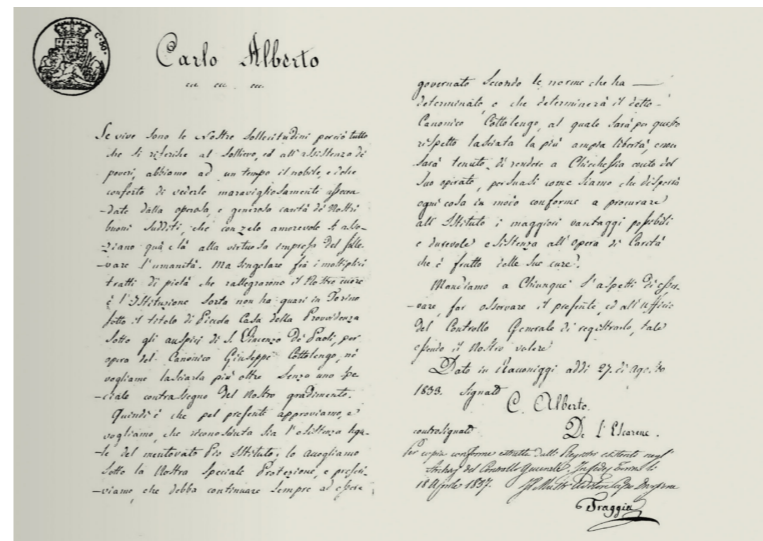 C. 50.
Carlo Alberto
ecc. ecc. ecc.
Se vive sono le Nostre Sollecitudini perciò tutto
che si riferisce al Sollievo, ed all'assistenza de'
poveri, abbiamo ad un tempo il nobile, e dolce
conforto di vederlo maravigliosamente assecon-
-date dalla operosa, e generosa carità de' Nostri
buoni Sudditi, che con zelo amorevole s'asso-
-ziano quà e là alla virtuosa impresa del solle-
-vare l'umanità. Ma singolare frà i molteplici
tratti di pietà che rallegrarono il Nostro cuore
è l'Istituzione Sorta non ha guari in Torino
sotto il titolo di Piccola Casa della Provvidenza
sotto gli auspici di S. Vincenzo De' Paoli, per
opera del Canonico Giuseppe Cottolengo, nè
vogliamo lasciarla più oltre Senza uno spe-
-ciale contrassegno del Nostro gradimento.
Quindi è che pel presente approviamo, e
vogliamo, che riconosciuta sia l'esistenza lega-
-le del mentovato Pio Istituto; lo accogliamo
Sotto la Nostra Speciale Protezione, e prescri-
-viamo, che debba continuare Sempre ad essere
governato Secondo le norme che ha
determinato, e che determinerà il detto
Canonico Cottolengo, al quale sarà per questo
rispetto lasciata la più ampia libertà,
sarà tenuto di rendere a Chichessia conto del
Suo operato, persuasi come siamo che disporrà
ogni cosa in modo conforme a procurare
all'Istituto i maggiori vantaggi possibili
e durevole esistenza all'opera di Carità
che è frutto delle Sue cure.
Mandiamo a Chiunque s'aspetti di osser-
-vare, far osservare il presente, ed all'Ufficio
del Controllo Generale di registrarlo, tale
essendo il Nostro volere.
Dato in Racconiggi addì 27. di Agosto
1833. Signato
C. Alberto.
controsignato De L'Escarene.
Per copia conforme estratta dalli Registri esistenti negli
Archivj del Controllo Generale. In fede, Torino li
18 Aprile 1837.
Traggia